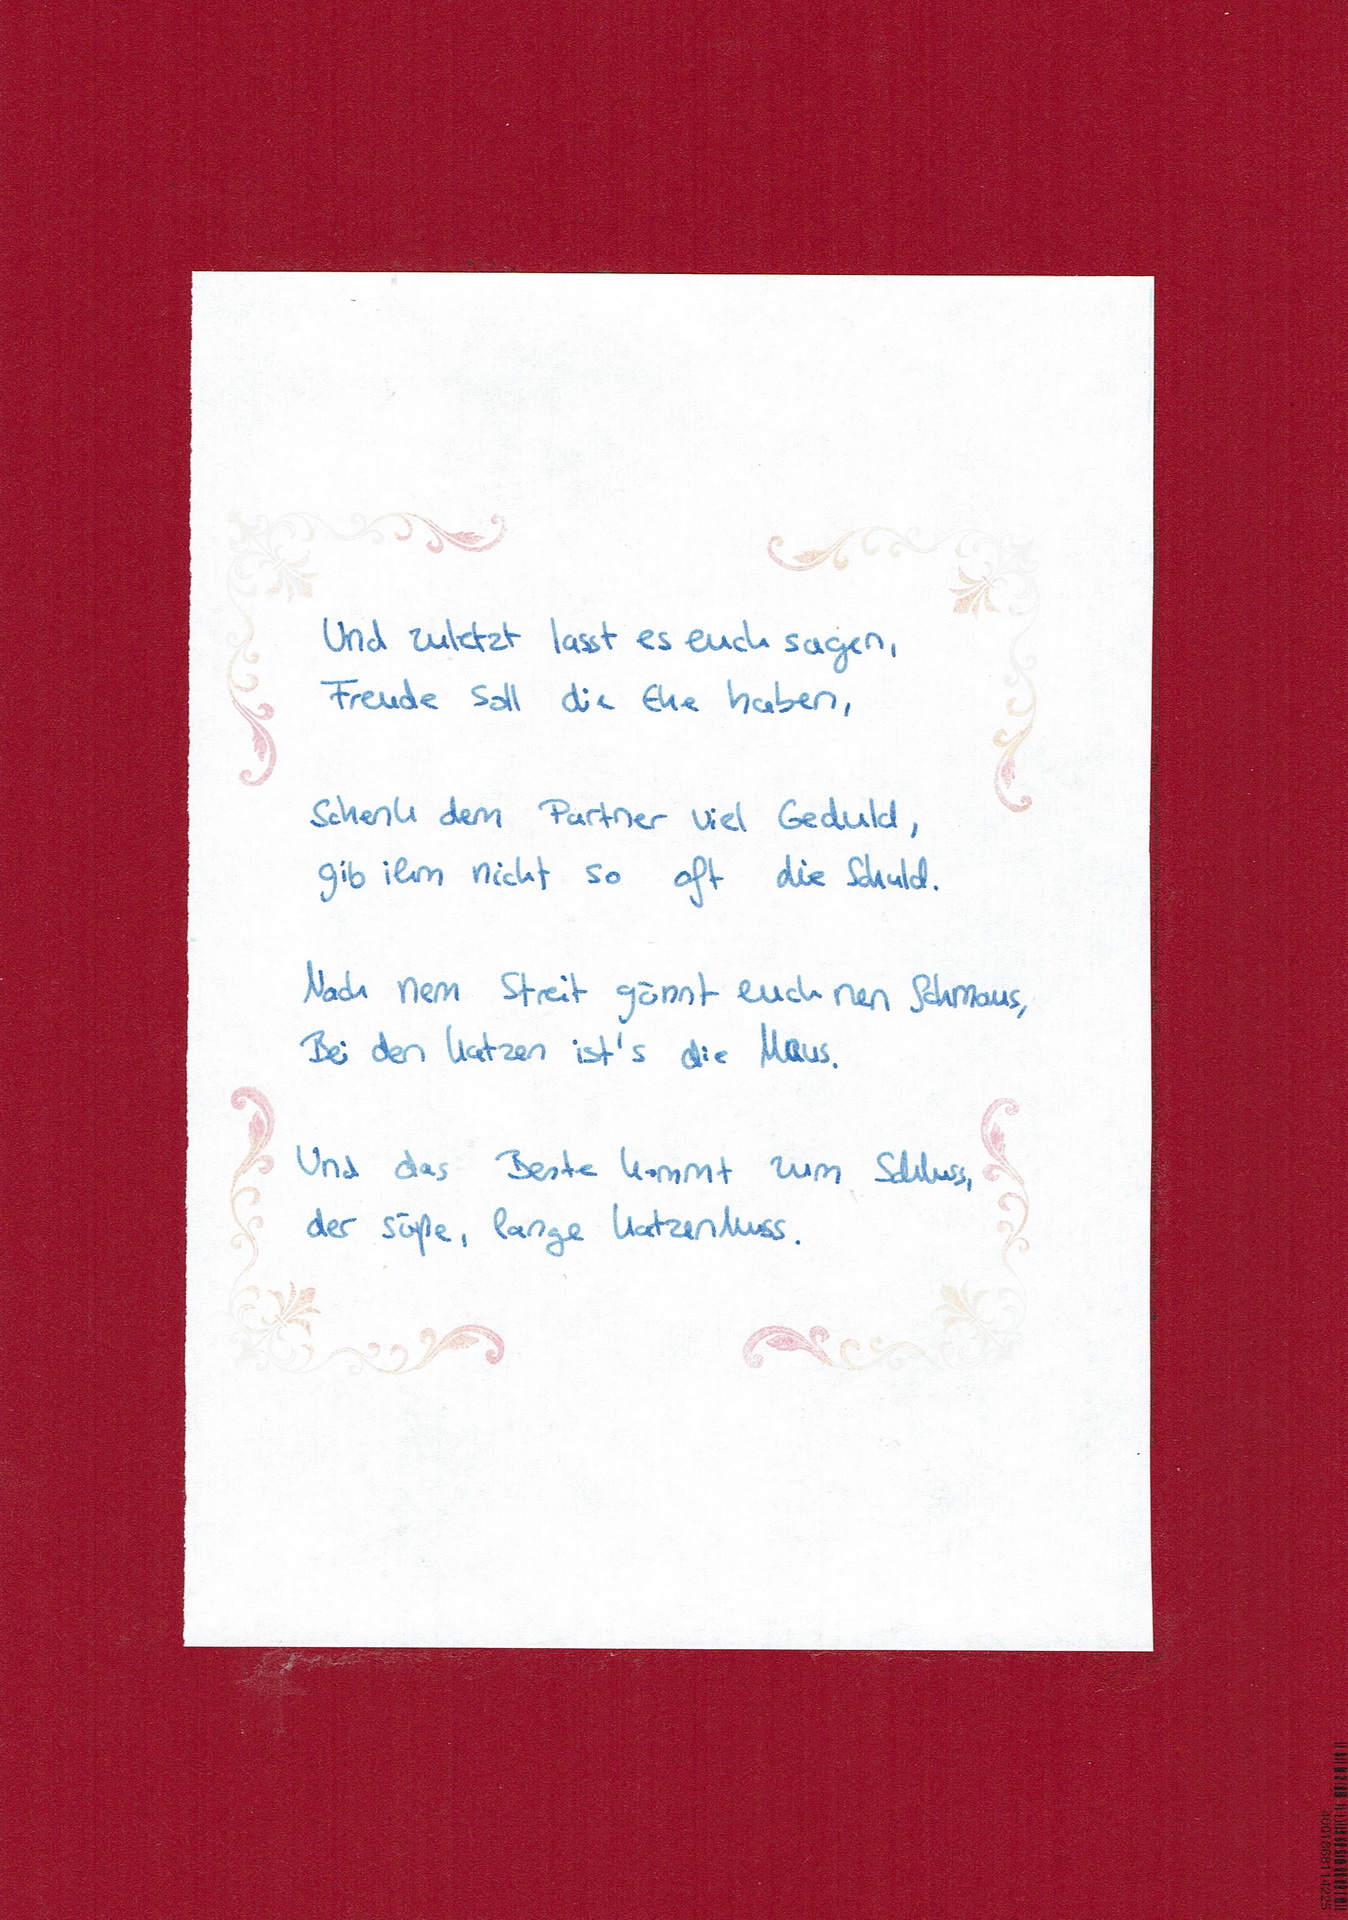 Und zuletzt lasst es euch sagen,
Freude soll die Ehe haben,
Schenk dem Partner viel Geduld,
gib ihm nicht so oft die Schuld.
Nach nem Streit gönnt euch nen Schmaus,
Bei den Katzen ist's die Maus.
Und das Beste kommt zum Schluss,
der süße, lange Katzenkuss.